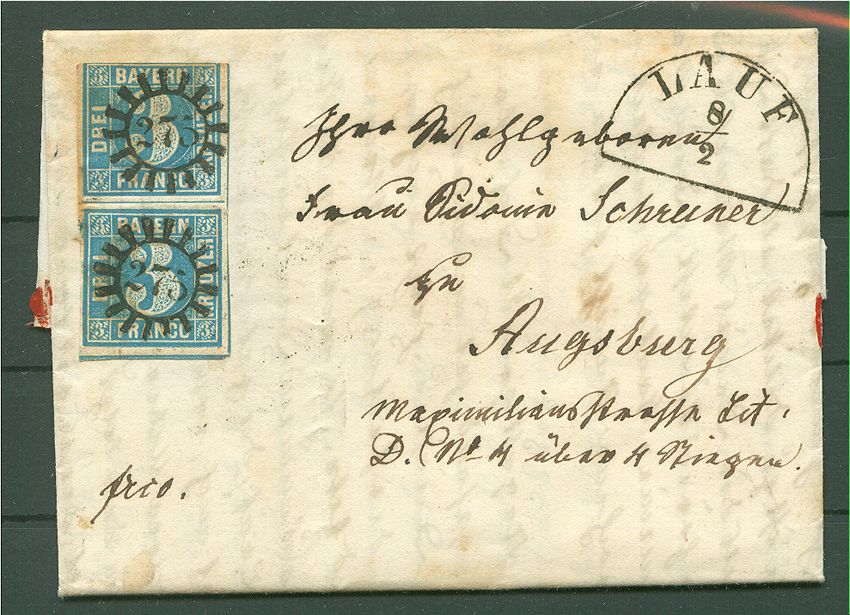 BAYERN
DREI
3
KREUZER
FRANCO
275
BAYERN
DREI
3
KREUZER
FRANCO
275
LAUF
8/2
Ihro Wohlgeboren
Frau Sidonie Schreiner
zu
Augsburg
Maximiliansstrasse Lit.
D. No 4 über 4 Stiegen.
frco.